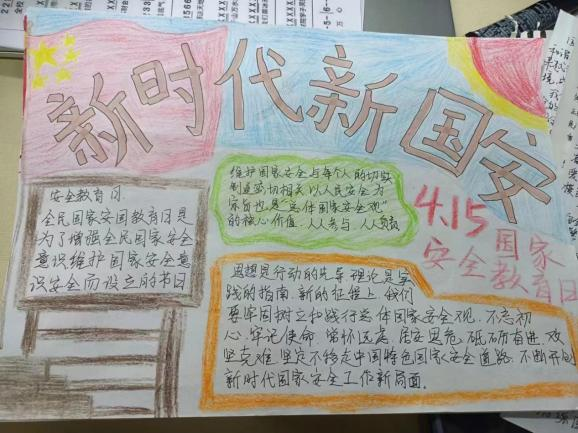 新时代新国安
安全教育日
全民国家安国教育日是
为了增强全民国家安全
意识维护国家安全意
识安全而设立的节日
维护国家安全与每个人的切身
利益密切相关以人民安全为
宗旨也是“总体国家安全观”
的核心价值，人人参与，人人负责
4.15
国家
安全教育日
思想是行动的先导理论是实
践的指南，新的征程上，我们
要牢固树立和践行总体国家安全观，不忘初
心，牢记使命，常怀远虑，居安思危，砥砺奋进，攻
坚克难，坚定不移走中国特色国家安全道路，不断开创
新时代国家安全工作新局面。